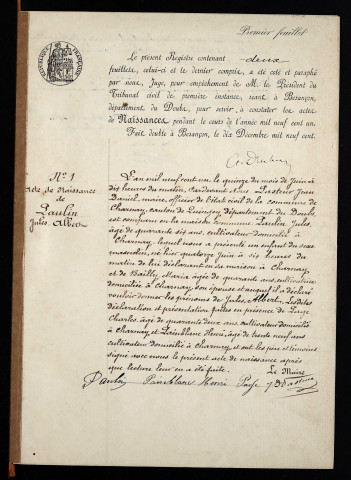 Premier feuillet
RÉPUBLIQUE FRANÇAISE
Le présent Registre contenant deux
feuillets, celui-ci et le dernier compris, a été coté et paraphé
par nous, Juge, pour empêchement de M. le Président du
Tribunal civil de première instance, séant à Besançon,
département du Doubs, pour servir, à constater les actes
de Naissances pendant le cours de l'année mil neuf cent un.
Fait double à Besançon, le dix Décembre mil neuf cent.
N° 1
Acte de Naissance
de
Paulin
Jules Albert
L'an mil neuf cent un le quinze du mois de Juin à
dix heures du matin, Pardevant Nous Pasteur Jean
Daniel, maire, officier de l'état civil de la commune de
Charnay, canton de Quingey, département du Doubs,
est comparu en la maison commune Paulin Jules,
âgé de quarante six ans, cultivateur domicilié à
Charnay, lequel nous a présenté un enfant du sexe
masculin, né hier quatorze Juin à six heures du
matin de lui déclarant en sa maison à Charnay
et de Bailly Maria âgée de quarante ans, cultivatrice
domiciliée à Charnay, son épouse et auquel il a déclaré
vouloir donner les prénoms de Jules, Albert. Lesdites
déclaration et présentation faites en présence de
Charles, âgé de quarante deux ans, cultivateur domicilié
à Charnay et Painblanc Henri, âgé de trente neuf ans
cultivateur domicilié à Charnay, et ont les père et témoins
signé avec nous le présent acte de naissance après
que lecture leur en a été faite. Le Maire
Paulin Painblanc Henri JD Pasteur